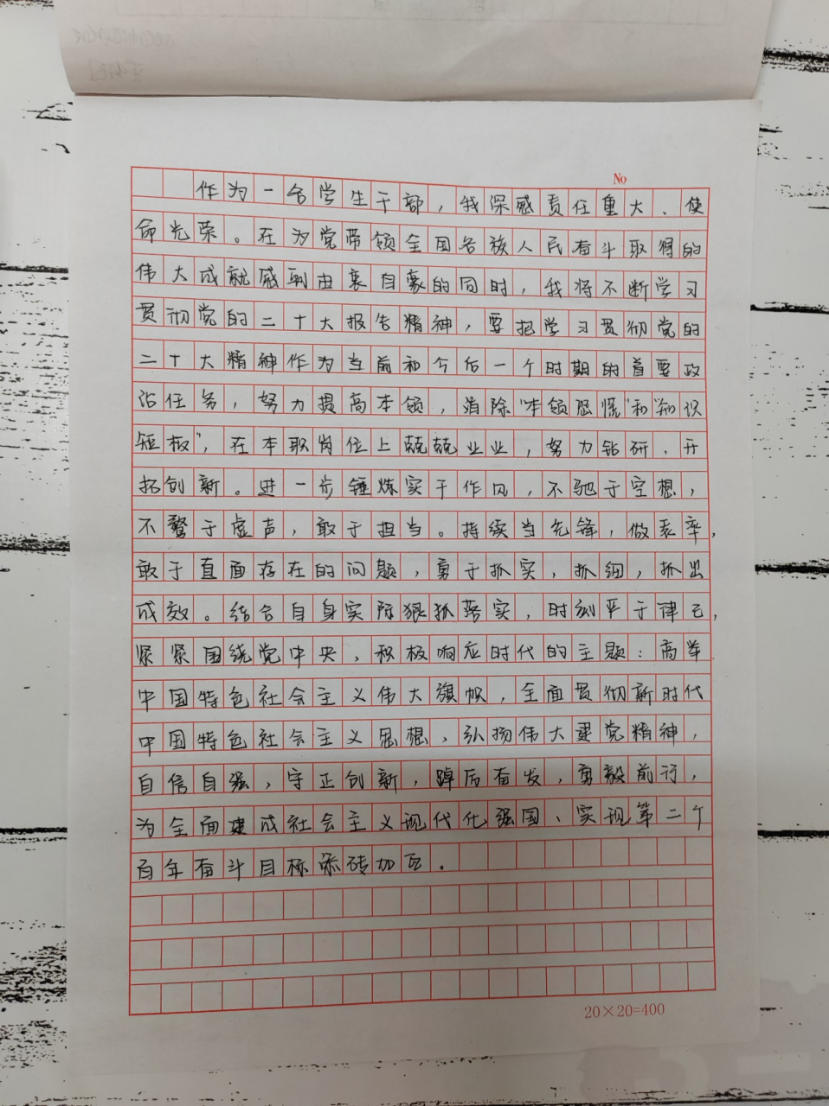 No
作为一名学生干部，我深感责任重大、使
命光荣。在为党带领全国各族人民奋斗取得的
伟大成就感到由衷自豪的同时，我将不断学习
贯彻党的二十大报告精神，要把学习贯彻党的
二十大精神作为当前和今后一个时期的首要政
治任务，努力提高本领，消除“本领恐慌”和“知识
短板”，在本职岗位上兢兢业业，努力钻研、开
拓创新。进一步锤炼实干作风，不驰于空想，
不骛于虚声，敢于担当。持续当先锋，做表率，
敢于直面存在的问题，勇于抓实，抓细，抓出
成效。结合自身实际狠抓落实，时刻严于律己，
紧紧围绕党中央，积极响应时代的主题：高举
中国特色社会主义伟大旗帜，全面贯彻新时代
中国特色社会主义思想，弘扬伟大建党精神，
自信自强，守正创新，踔厉奋发，勇毅前行，
为全面建成社会主义现代化强国、实现第二个
百年奋斗目标添砖加瓦．
20×20=400